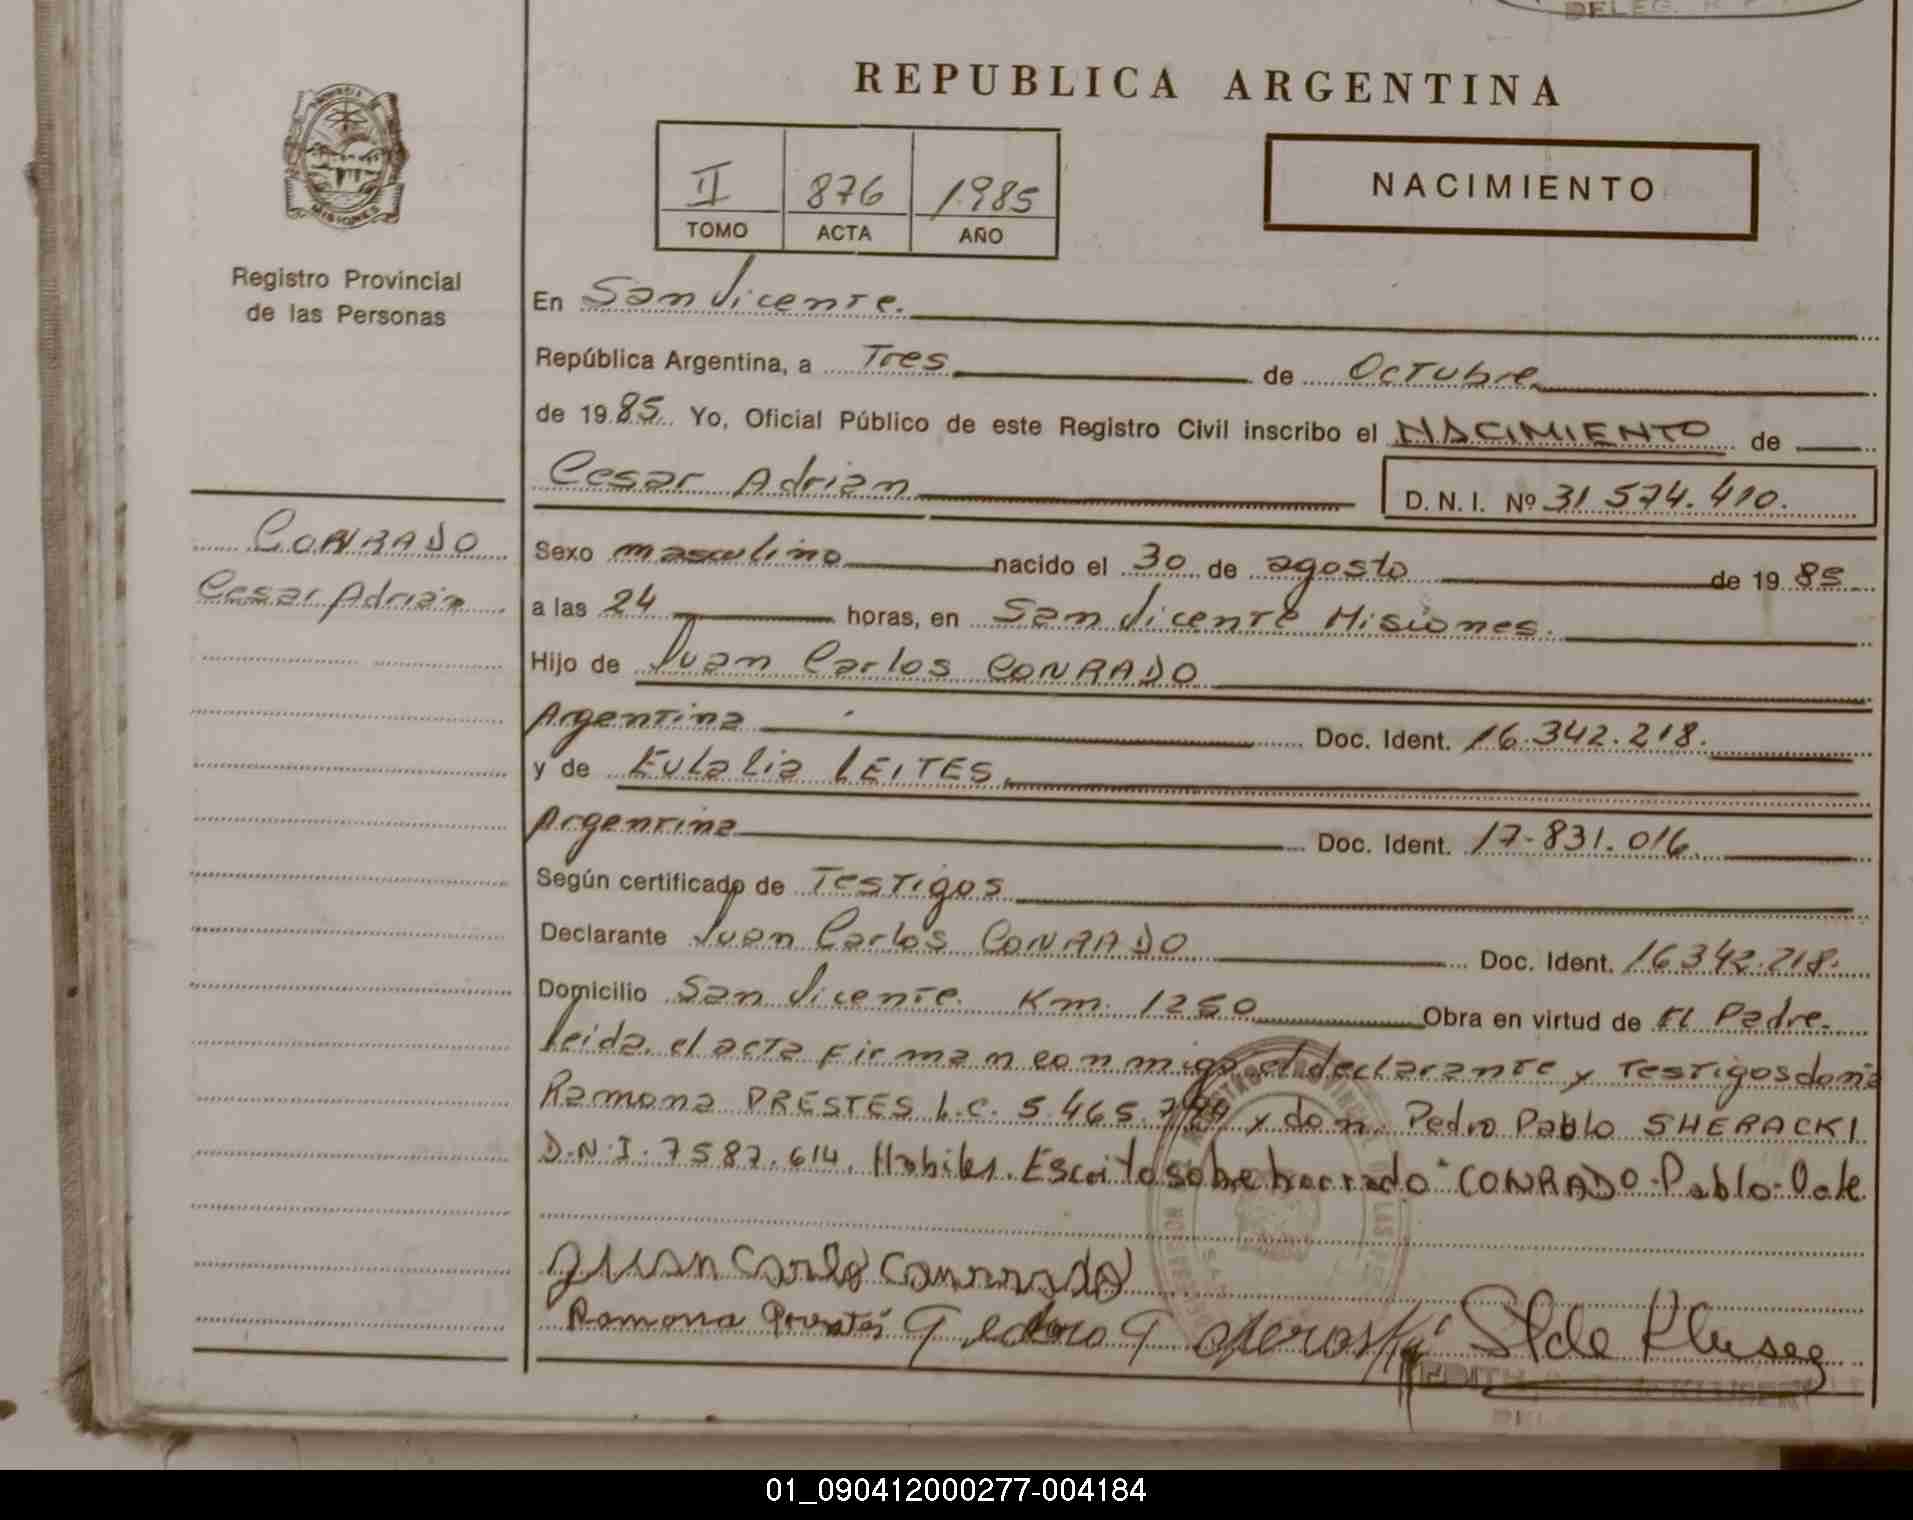 DELEG. R. P.
REPUBLICA ARGENTINA
II 876 1985
TOMO ACTA AÑO
NACIMIENTO
MISIONES
Registro Provincial
de las Personas
CONRADO
Cesar Adrián
En San Vicente.
República Argentina, a Tres de Octubre
de 1985. Yo, Oficial Público de este Registro Civil inscribo el NACIMIENTO de
Cesar Adrian D.N.I. Nº 31 574.410.
Sexo masculino nacido el 30 de agosto de 1985
a las 24 horas, en San Vicente Misiones.
Hijo de Juan Carlos CONRADO
Argentina Doc. Ident. 16.342.218.
y de Eulalia LEITES.
Argentina Doc. Ident. 17.831.016.
Según certificado de Testigos
Declarante Juan Carlos CONRADO Doc. Ident. 16342.218.
Domicilio San Vicente. Km. 1250 Obra en virtud de El Padre.
leida el acta firman conmigo el declarante y Testigos doña
Ramona PRESTES L.C. 5.465. y don Pedro Pablo SHERACKI
D.N.I. 7587.614. Habiles. Escrito sobre borrado "CONRADO-Pablo-Vale
Juan Carlo Conrrado
Ramona
01_090412000277-004184